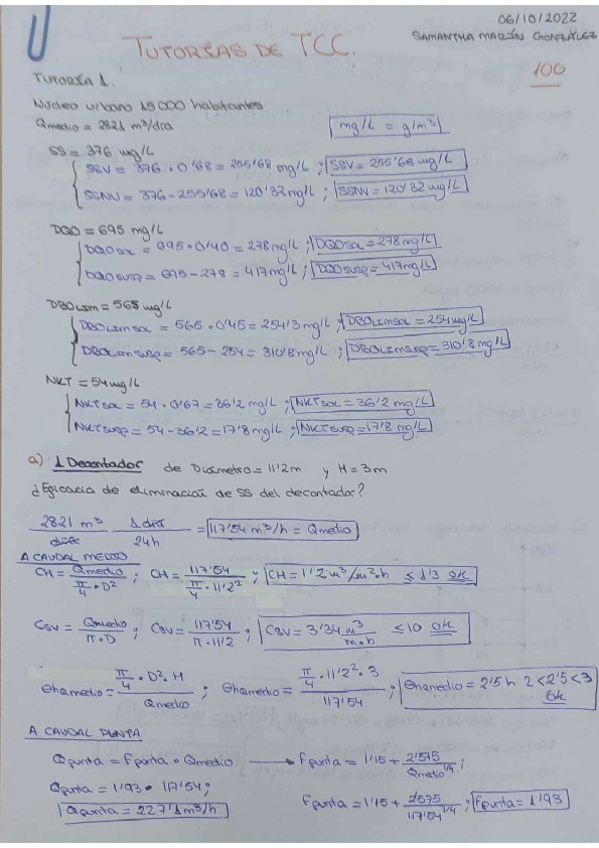 06/10/2022
TUTORÍAS DE TCC.
SAMANTHA MARÍN GONZÁLEZ
100
TUTORÍA 1.
Núcleo urbano 15000 habitantes
Qmedio = 2821 m³/día
mg/L = g/m³
SS = 376 mg/L
SSV = 376 · 0'68 = 255'68 mg/L ; SSV = 255'68 mg/L
SSNV = 376 - 255'68 = 120'32 mg/L ; SSNV = 120'32 mg/L
DQO = 695 mg/L
DQOsol = 695 · 0'40 = 278 mg/L ; DQOsol = 278 mg/L
DQOsusp = 695 - 278 = 417 mg/L ; DQOsusp = 417 mg/L
DBOLim = 565 mg/L
DBOLimsol = 565 · 0'45 = 254'3 mg/L ; DBOLimsol = 254 mg/L
DBOLimsusp = 565 - 254 = 310'8 mg/L ; DBOLimsusp = 310'8 mg/L
NKT = 54 mg/L
NKTsol = 54 · 0'67 = 36'2 mg/L ; NKTsol = 36'2 mg/L
NKTsusp = 54 - 36'2 = 17'8 mg/L ; NKTsusp = 17'8 mg/L
a) 1 Decantador de Diámetro = 11'2m y H = 3m
¿Eficacia de eliminación de SS del decantador?
2821 m³/día · 1 día/24h = 117'54 m³/h = Qmedio
A CAUDAL MEDIO
CH = Qmedio/(π/4 · D²) ; CH = 117'54/(π/4 · 11'2²) ; CH = 1'2 m³/m²·h ≤ 1'3 OK
CSV = Qmedio/(π · D) ; CSV = 117'54/(π · 11'2) ; CSV = 3'34 m³/m·h ≤ 10 OK
θhQmedio = (π/4 · D² · H)/Qmedio ; θhQmedio = (π/4 · 11'2² · 3)/117'54 ; θhQmedio = 2'5 h 2 < 2'5 < 3 OK
A CAUDAL PUNTA
Qpunta = Fpunta · Qmedio → Fpunta = 1'15 + 2'575/Qmedio^1/4 ;
Qpunta = 1'93 · 117'54 ; Fpunta = 1'15 + 2'575/117'54^1/4 ; Fpunta = 1'93
Qpunta = 227'1 m³/h